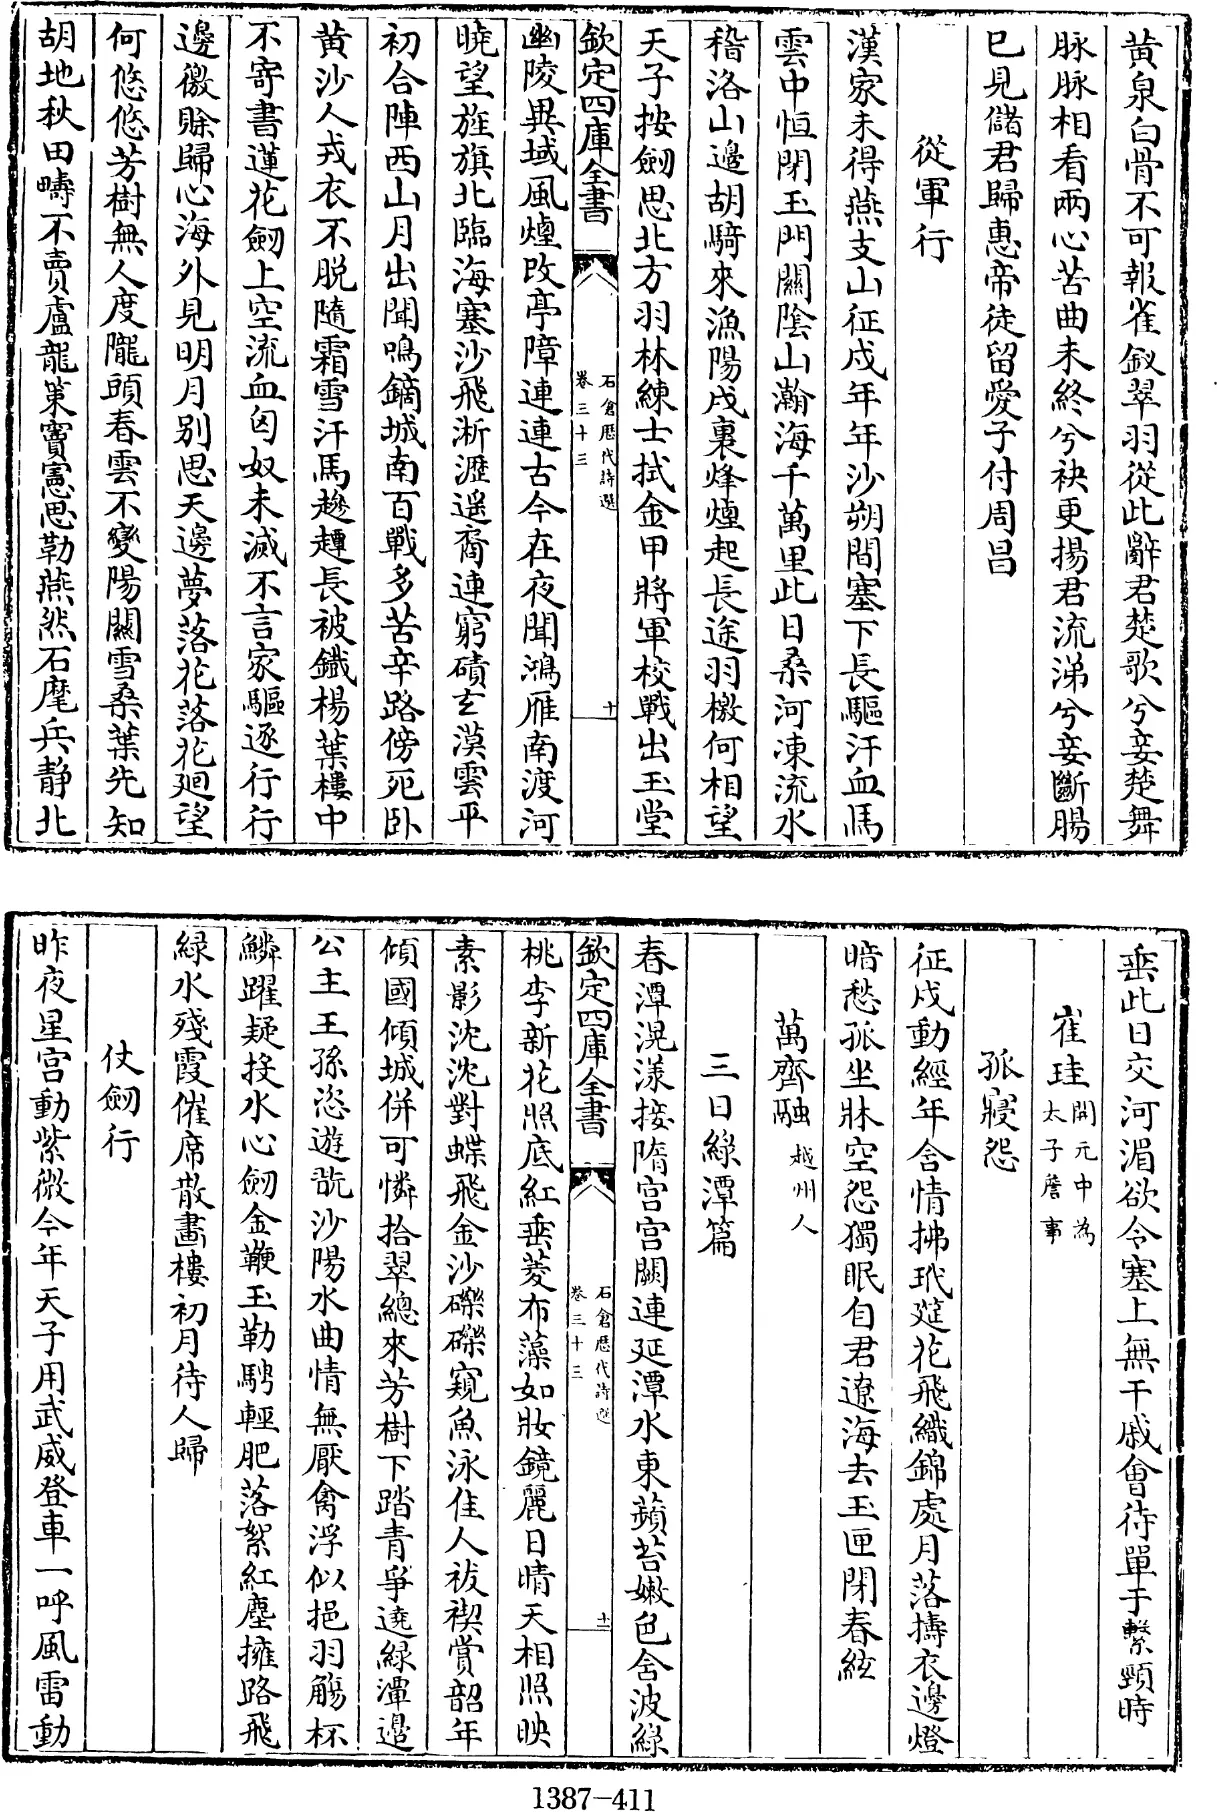 黄泉白骨不可報雀釵翠羽從此辭君楚歌兮妾楚舞
脉脉相看兩心苦曲未終兮袂更揚君流涕兮妾斷腸
已見儲君歸惠帝徒留愛子付周昌
從軍行
漢家未得燕支山征戍年年沙朔間塞下長驅汗血馬
雲中恒閉玉門關陰山瀚海千萬里此日桑河凍流水
稽洛山邊胡騎來漁陽戍裏烽煙起長途羽檄何相望
天子按劒思北方羽林練士拭金甲將軍校戰出玉堂
欽定四庫全書
石倉歴代詩選
卷三十三
十
幽陵異域風煙改亭障連連古今在夜聞鴻雁南渡河
曉望旌旗北臨海塞沙飛淅瀝遥裔連窮磧玄漠雲平
初合陣西山月出聞鳴鏑城南百戰多苦辛路傍死卧
黄沙人戎衣不脱隨霜雪汗馬趁趯長被鐵楊葉樓中
不寄書蓮花劒上空流血匈奴未滅不言家驅逐行行
邊徼賒歸心海外見明月别思天邊夢落花落花廻望
何悠悠芳樹無人度隴頭春雲不變陽關雪桑葉先知
胡地秋田疇不賣盧龍策竇憲思勒燕然石麾兵静北
垂此日交河湄欲令塞上無干戚會待單于繫頸時
崔珪開元中為
太子詹事
孤寢怨
征戍動經年含情拂玳筵花飛織錦處月落擣衣邊燈
暗愁孤坐牀空怨獨眠自君遼海去玉匣閉春絃
萬齊融越州人
三日緑潭篇
春潭滉漾接隋宫宫闕連延潭水東蘋苔嫩色含波緑
欽定四庫全書
石倉歴代詩選
卷三十三
十一
桃李新花照底紅垂菱布藻如妝鏡麗日晴天相照映
素影沈沈對蝶飛金沙礫礫窺魚泳佳人祓禊賞韶年
傾國傾城併可憐拾翠總來芳樹下踏青爭遶緑潭邊
公主王孫恣遊翫沙陽水曲情無厭禽浮似挹羽觴杯
鱗躍疑投水心劒金鞭玉勒騁輕肥落絮紅塵擁路飛
緑水殘霞催席散畫樓初月待人歸
仗劒行
昨夜星宫動紫微今年天子用武威登車一呼風雷動
1387-411